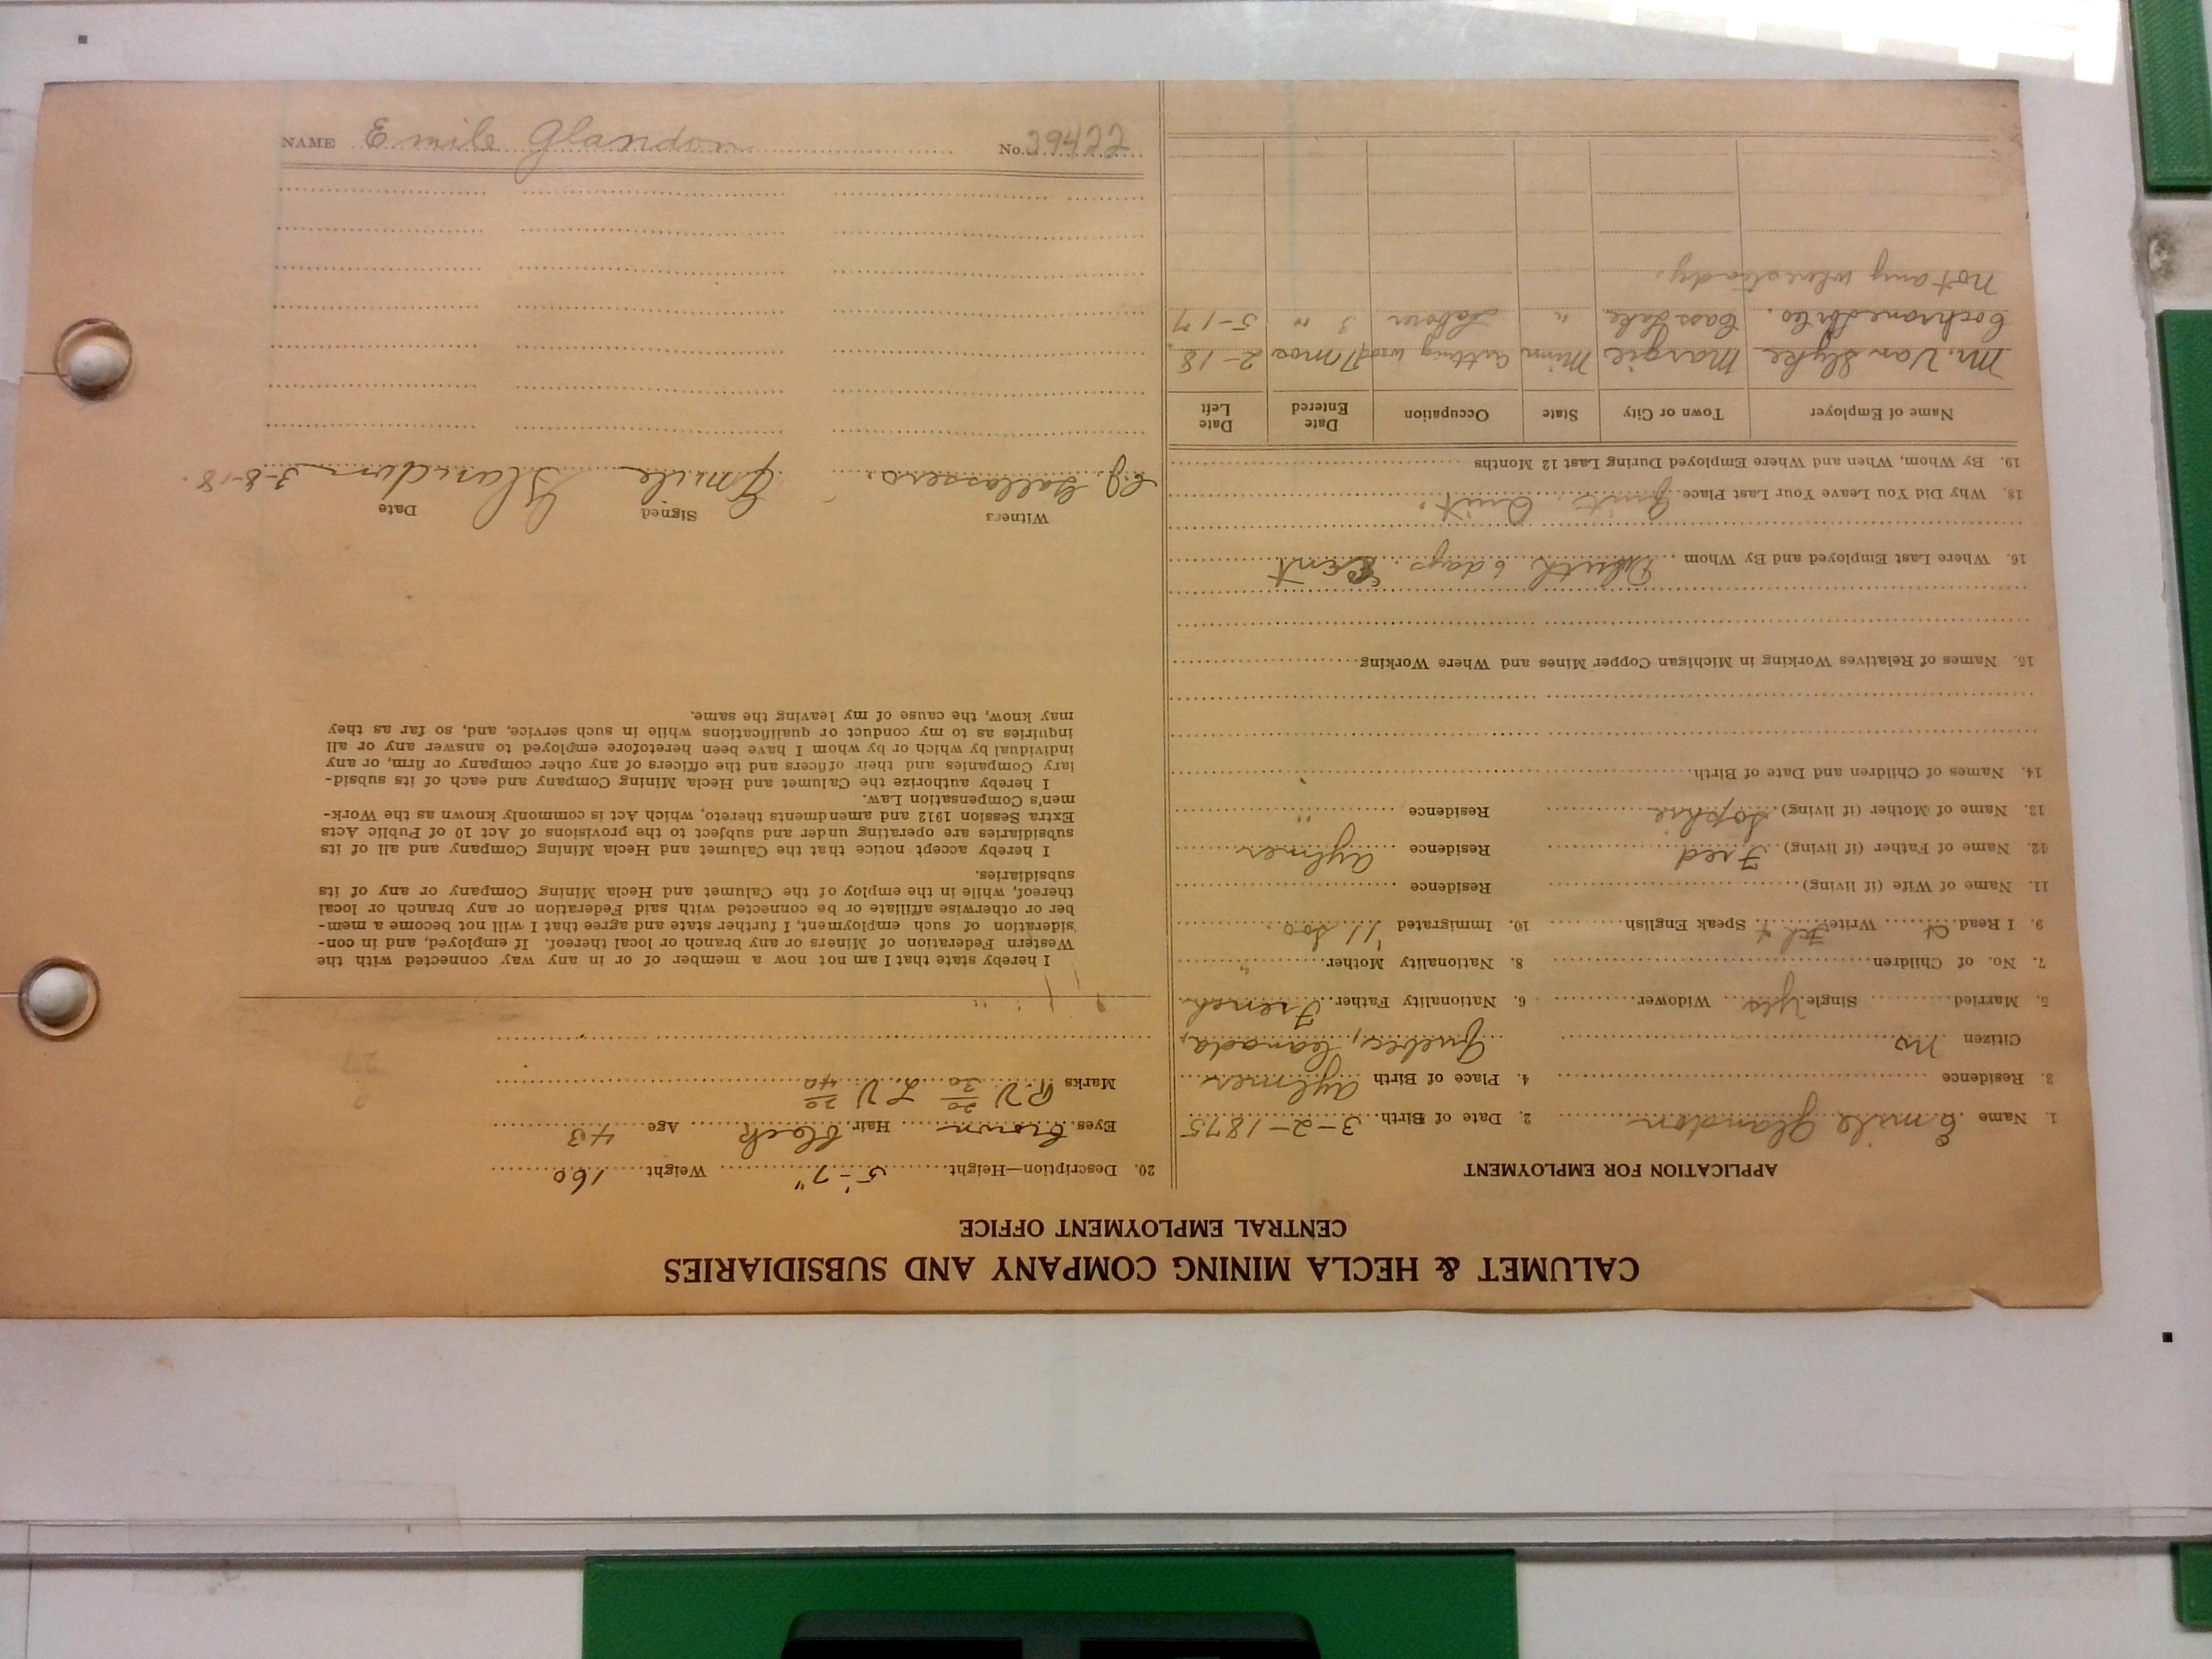 CALUMET & HECLA MINING COMPANY AND SUBSIDIARIES
CENTRAL EMPLOYMENT OFFICE
APPLICATION FOR EMPLOYMENT
1. Name Emile Glandon 2. Date of Birth 3-2-1875
3. Residence 4. Place of Birth Aylmer
Citizen no Quebec, Canada,
5. Married Single yes Widower 6. Nationality Father French
7. No. of Children 8. Nationality Mother "
9. I Read Write Speak English 10. Immigrated '11 Soo.
11. Name of Wife (if living) Residence
12. Name of Father (if living) Fred Residence Aylmer
13. Name of Mother (if living) Sophie Residence "
14. Names of Children and Date of Birth
15. Names of Relatives Working in Michigan Copper Mines and Where Working
16. Where Last Employed and By Whom Duluth 6 days.
18. Why Did You Leave Your Last Place Quit.
19. By Whom, When and Where Employed During Last 12 Months
Name of Employer Town or City State Occupation Date Entered Date Left
M. Van Slyke Margie Minn Cutting wood 7 mos 2-18
Cochrane Co. Cass Lake " Laborer 3 " 5-17
not any where steady.
20. Description—Height 5'-7" Weight 160
Eyes brown Hair black Age 43
Marks R.V 20/30 L.V 20/40
I hereby state that I am not now a member of or in any way connected with the
Western Federation of Miners or any branch or local thereof. If employed, and in con-
sideration of such employment, I further state and agree that I will not become a mem-
ber or otherwise affiliate or be connected with said Federation or any branch or local
thereof, while in the employ of the Calumet and Hecla Mining Company or any of its
subsidiaries.
I hereby accept notice that the Calumet and Hecla Mining Company and all of its
subsidiaries are operating under and subject to the provisions of Act 10 of Public Acts
Extra Session 1912 and amendments thereto, which Act is commonly known as the Work-
men's Compensation Law.
I hereby authorize the Calumet and Hecla Mining Company and each of its subsid-
iary Companies and their officers and the officers of any other company or firm, or any
individual by which or by whom I have been heretofore employed to answer any or all
inquiries as to my conduct or qualifications while in such service, and, so far as they
may know, the cause of my leaving the same.
Witness Signed Date
C.J. Gallassero. Emile Glandon 3-8-18.
NAME Emile Glandon No. 29422